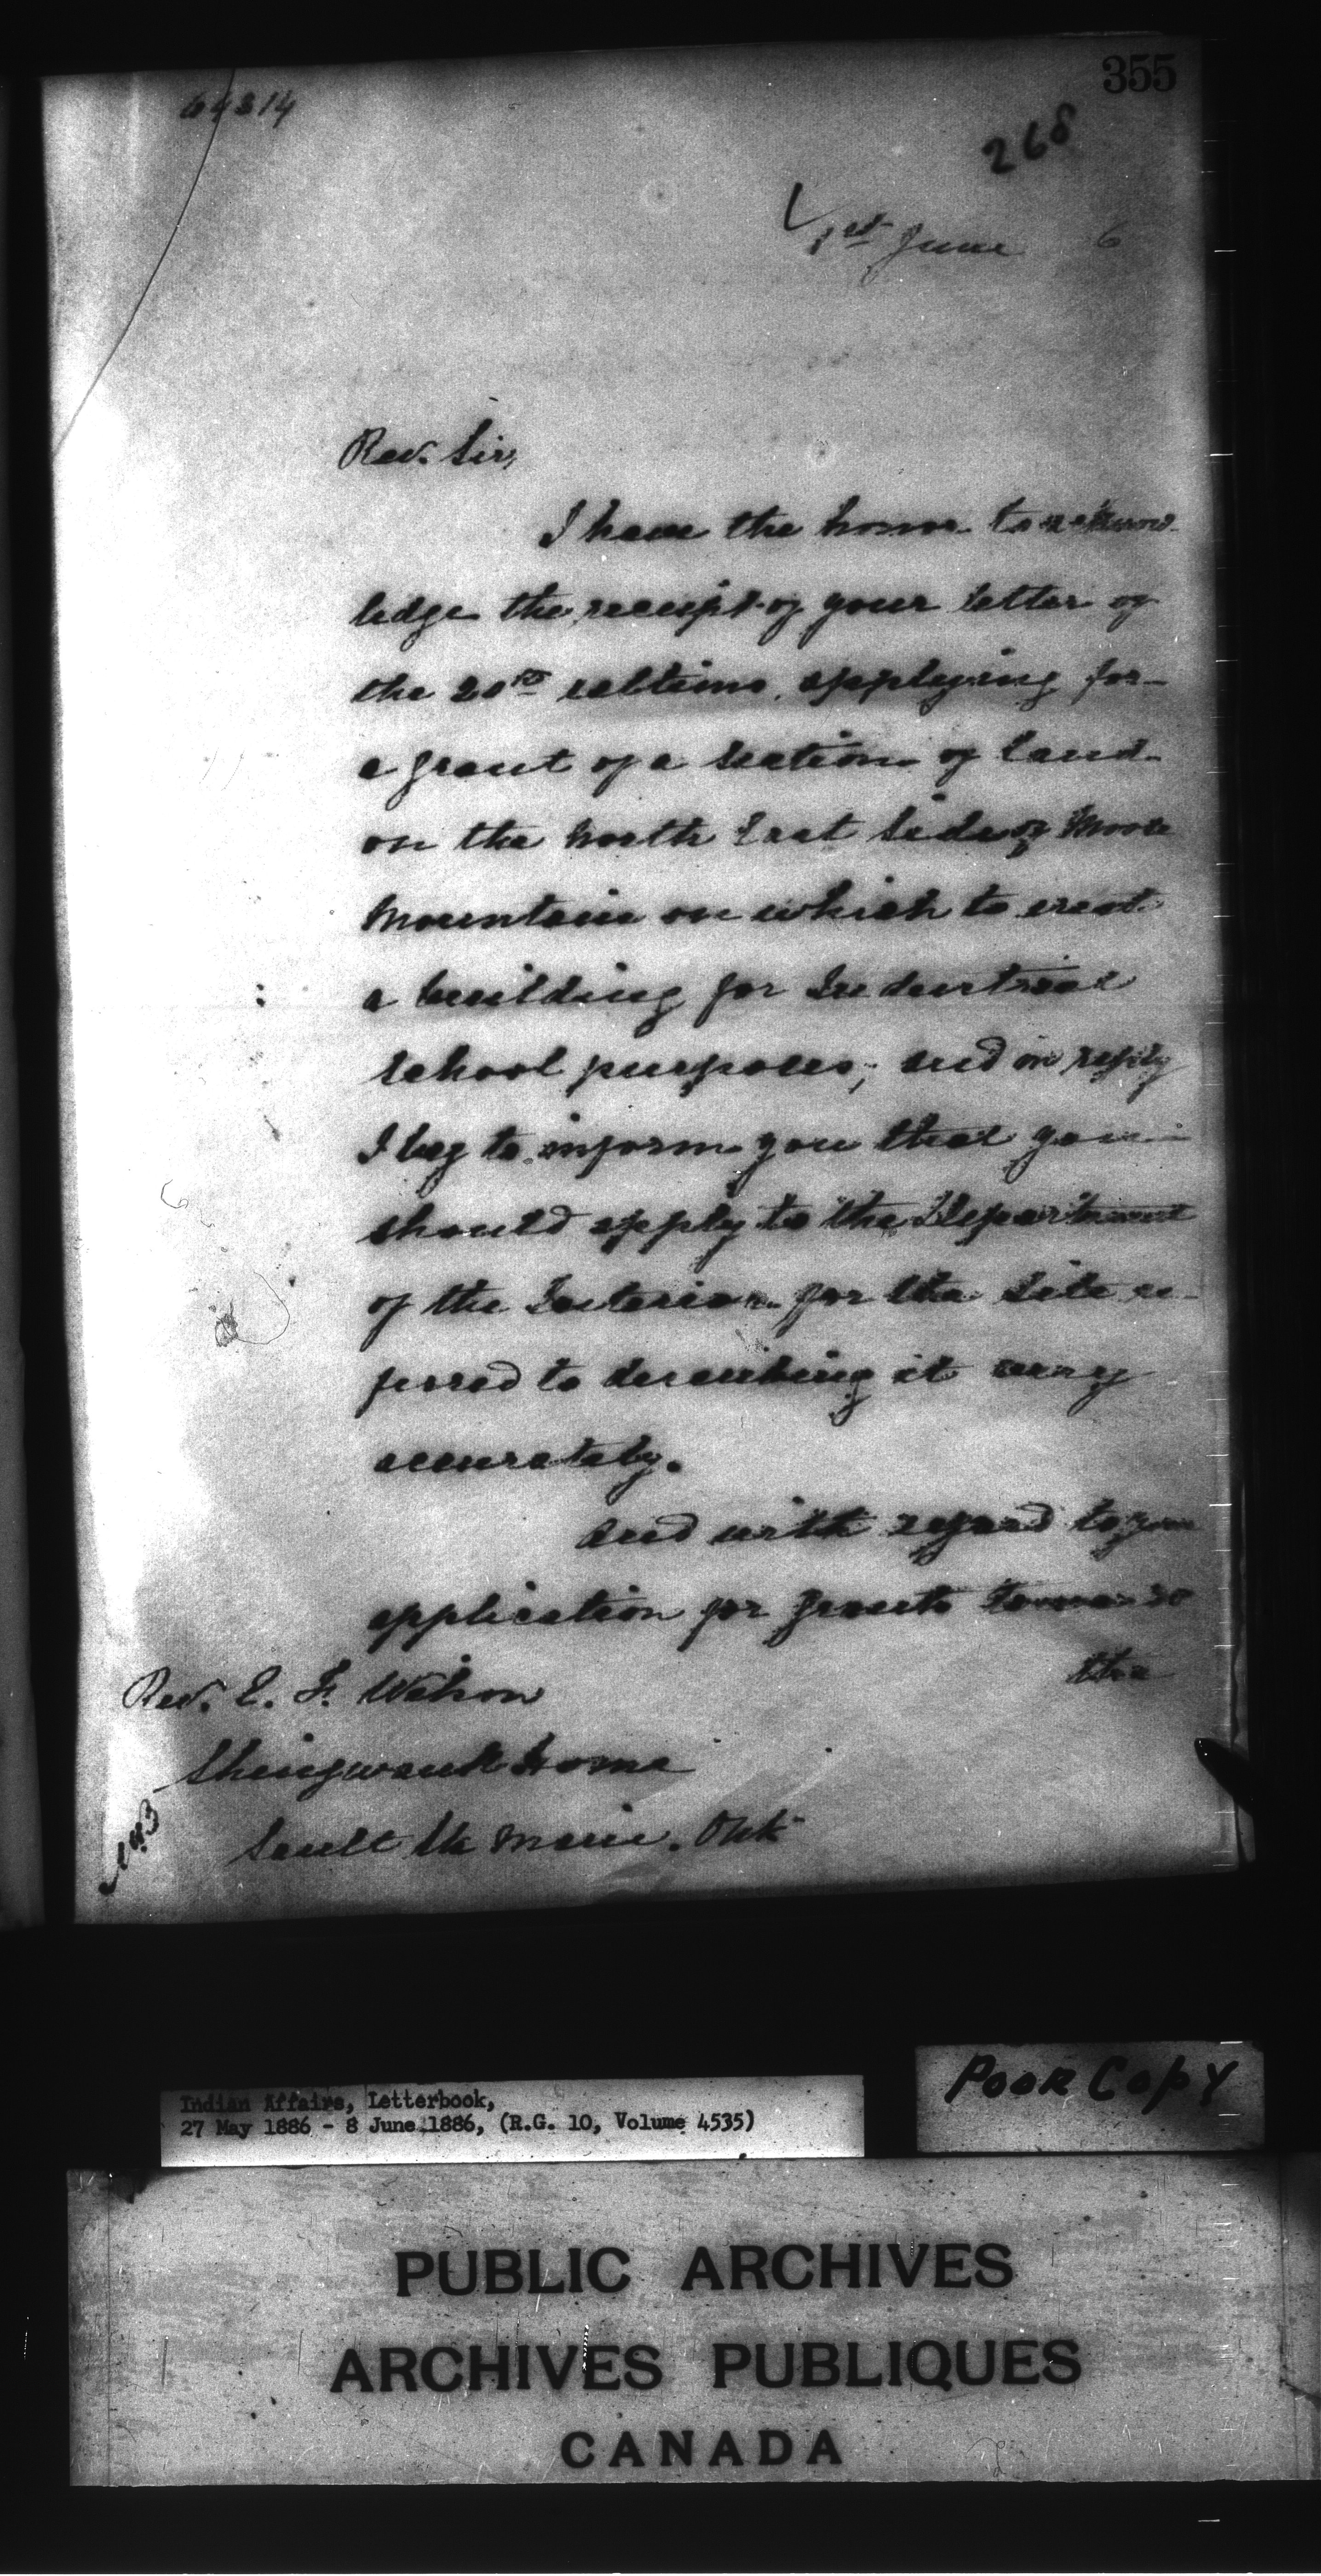 355
268
1st June 6
Rev. Sir,
I have the honor to acknow-
ledge the receipt of your letter of
the 20th ultimo, applying for
a grant of a section of land
on the North East side of Moose
Mountain on which to erect
a building for Industrial
school purposes; and in reply
I beg to inform you that you
should apply to the Department
of the Interior for the site re-
ferred to describing it very
accurately.
And with regard to your
application for grants towards
the
Rev. E. F. Wilson
Shingwauk Home
Sault Ste Marie. Ont
Indian Affairs, Letterbook,
27 May 1886 - 8 June 1886, (R.G. 10, Volume 4535)
POOR COPY
PUBLIC ARCHIVES
ARCHIVES PUBLIQUES
CANADA